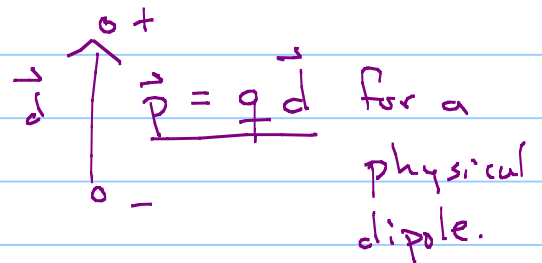 +
d⃗ p⃗ = q d⃗ for a
−
physical
dipole.